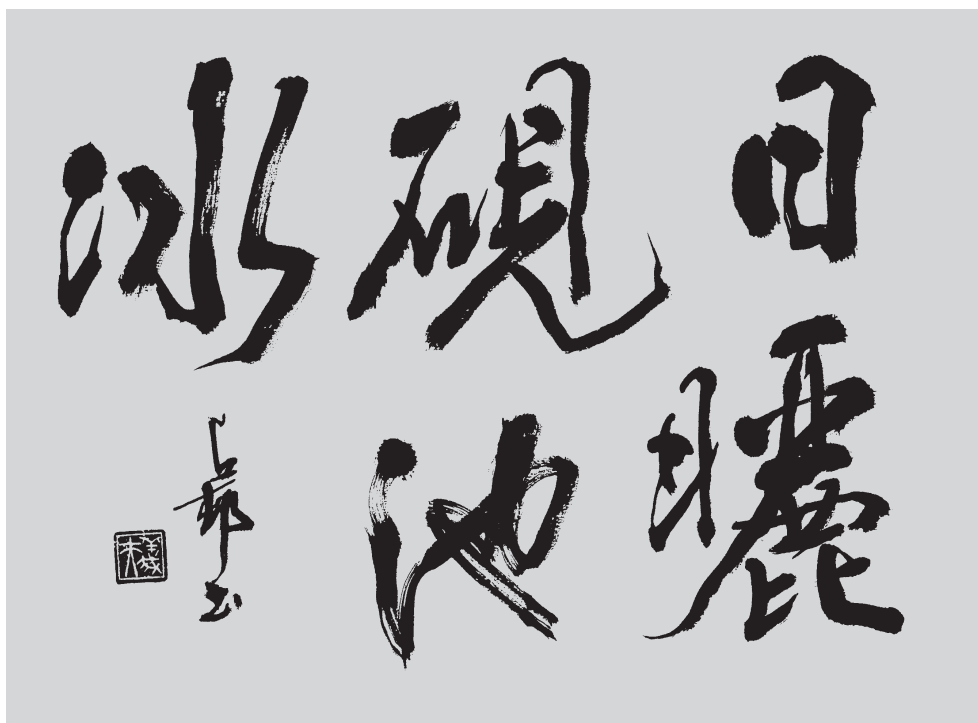 日曬
硯池
冰